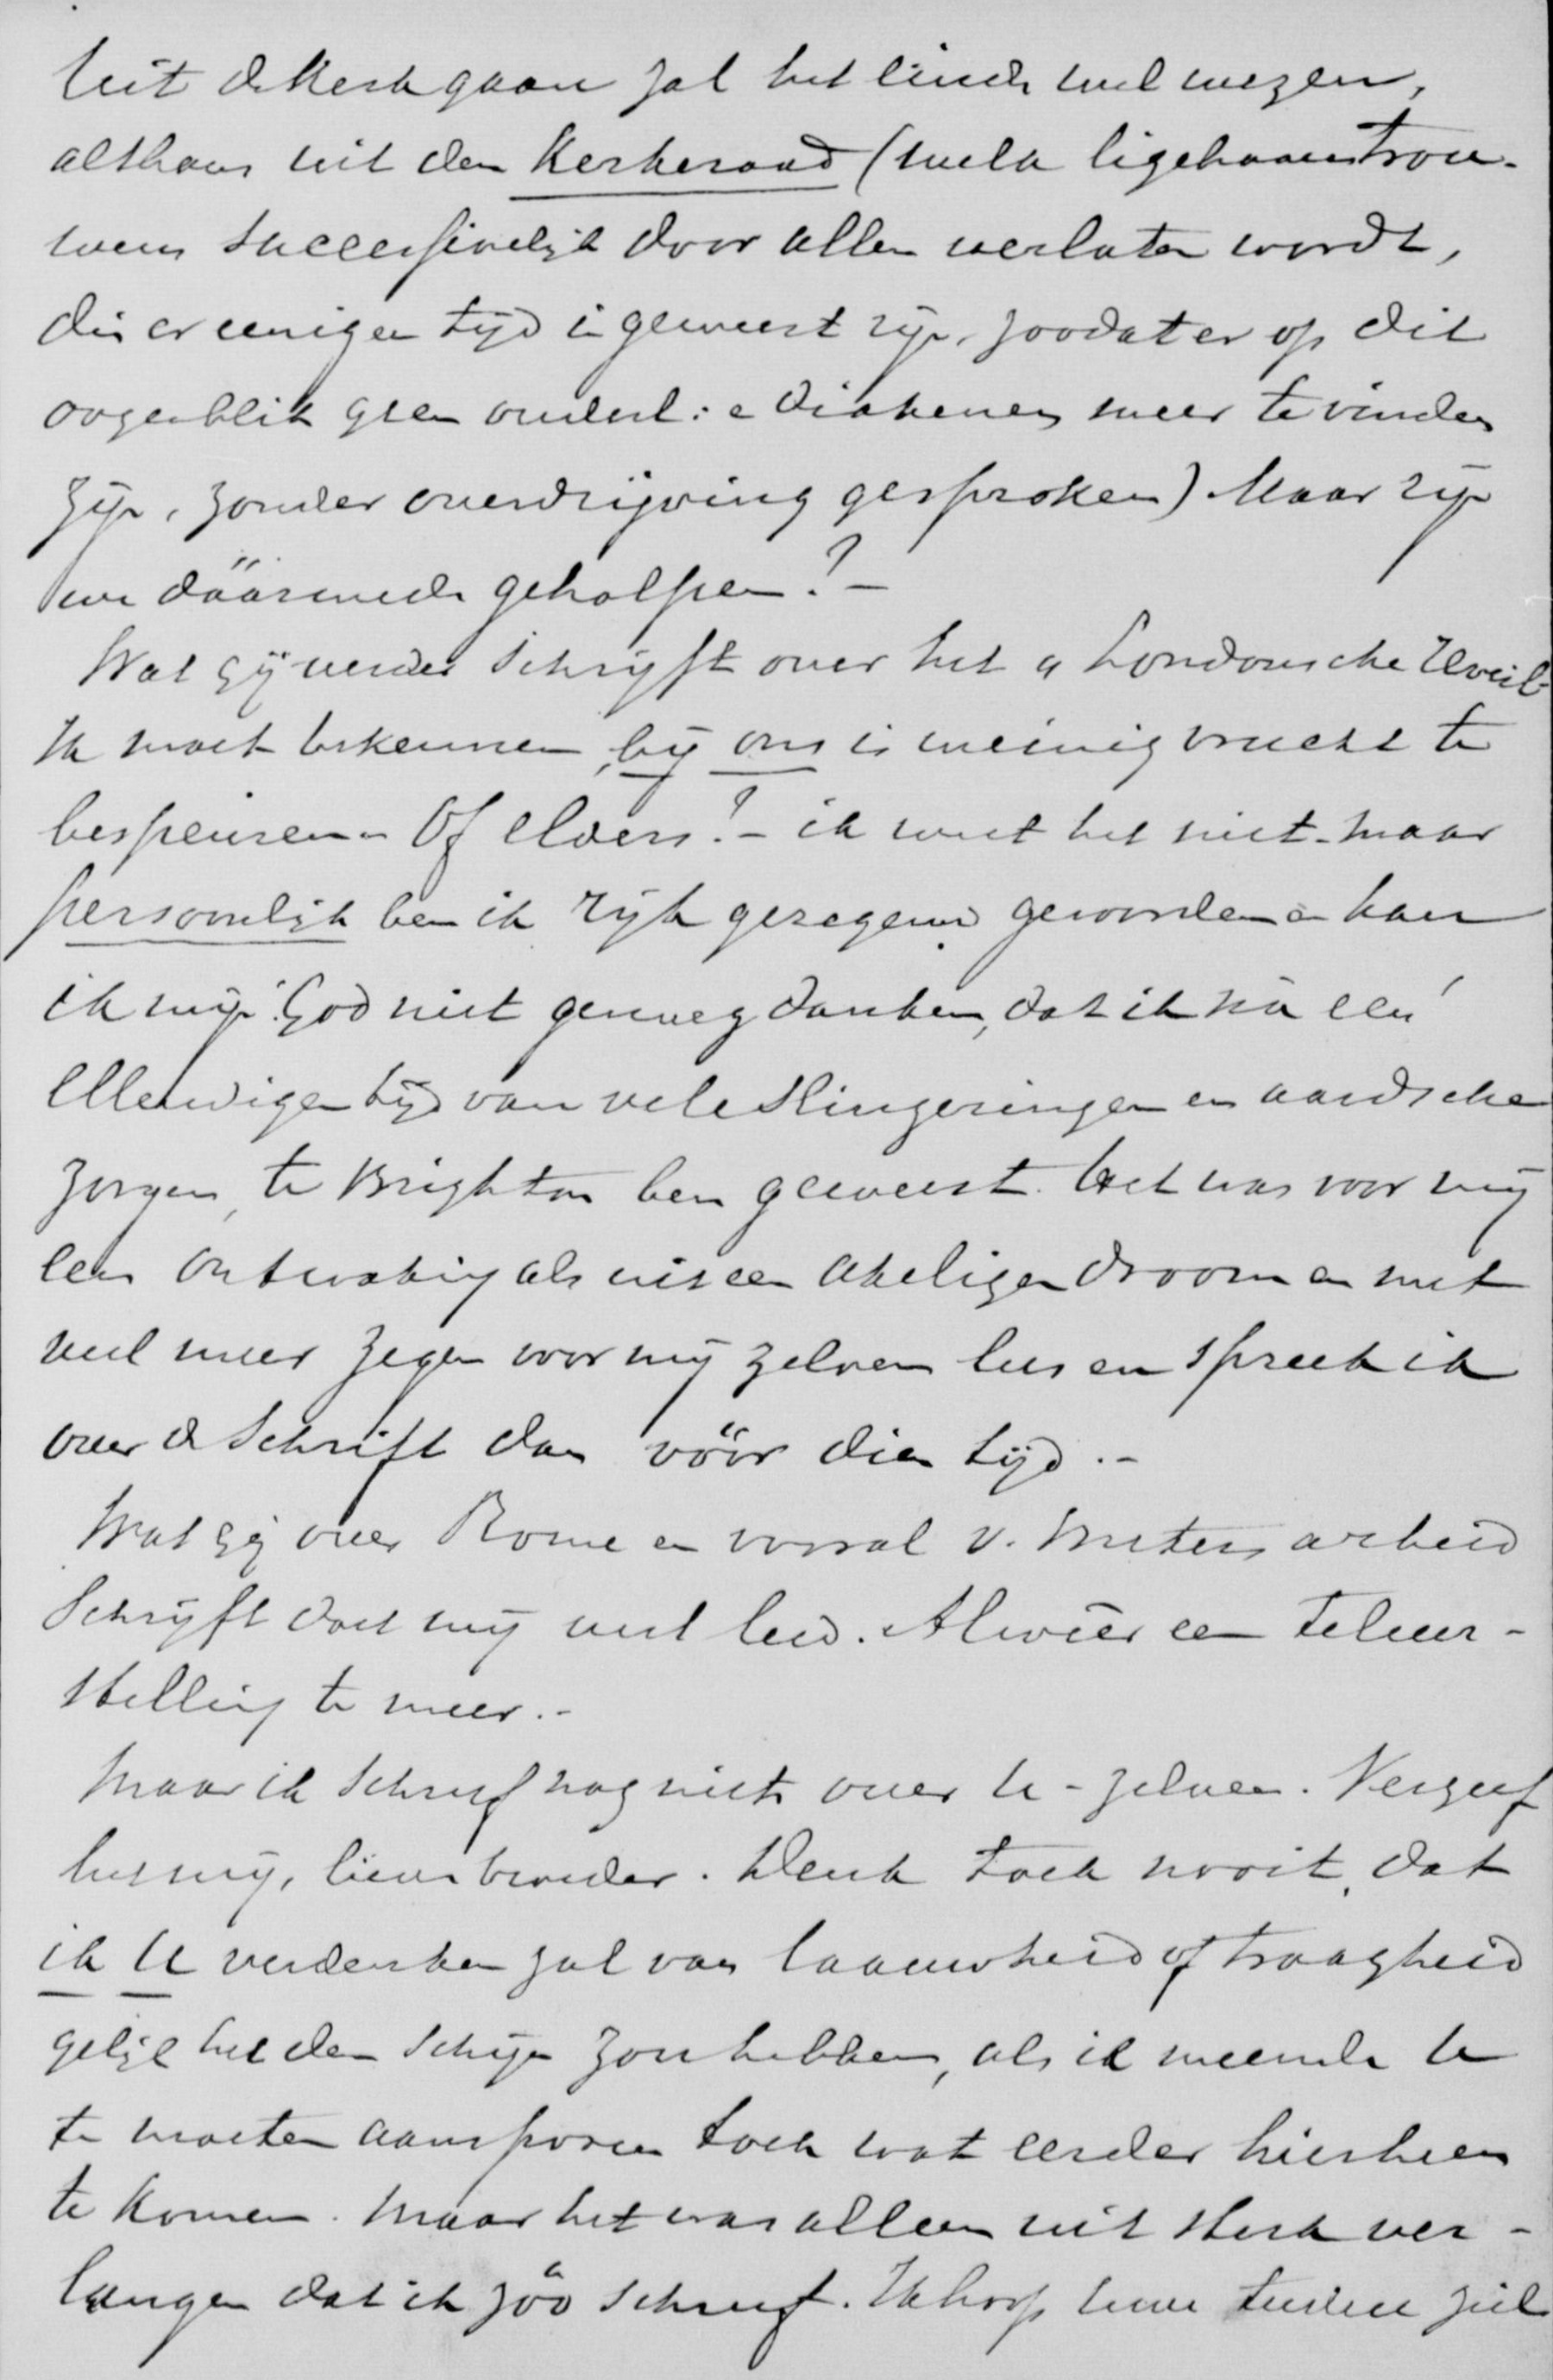 Uit de Kerk gaan zal het einde wel wezen,
althans uit den Kerkeraad (welk ligchaam trou-
wens successivelijk door allen verlaten wordt,
die er eenigen tijd in geweest zijn, zoodat er op dit
oogenblik geen ouderl: e diakenen meer te vinden
zijn, zonder overdrijving gesproken). Maar zijn
we dáármede geholpen? -
Wat gij verder schrijft over het "Londonsche
Ik moet bekennen, bij ons is weinig vrucht te
bespeuren. Of elders? - ik weet het niet. maar
persoonlijk ben ik rijk gezegend geworden en kan
ik mijn God niet genoeg danken, dat ik ná een
ellendigen tijd van vele slingeringen en aardsche
zorgen, te Brighton ben geweest. Het was voor mij
een ontwaking als uit een akeligen droom en met
veel meer zegen voor mij zelven lees en spreek ik
over de Schrift dan vóór dien tijd. -
Wat gij over Rome en vooral v. Meters arbeid
schrijft doet mij veel leed. Alweêr een teleur-
stelling te meer. -
Maar ik schreef nog niets over U-zelven. Vergeef
het mij, lieve broeder. Denk toch nooit, dat
ik U verdenken zal van laauwheid of traagheid
gelijk het den schijn zou hebben, als ik meende U
te moeten aansporen toch wat eerder hierheen
te komen. Maar het was alleen uit sterk ver-
langen dat ik zóó schreef. Ik hoop uwe teedere ziel